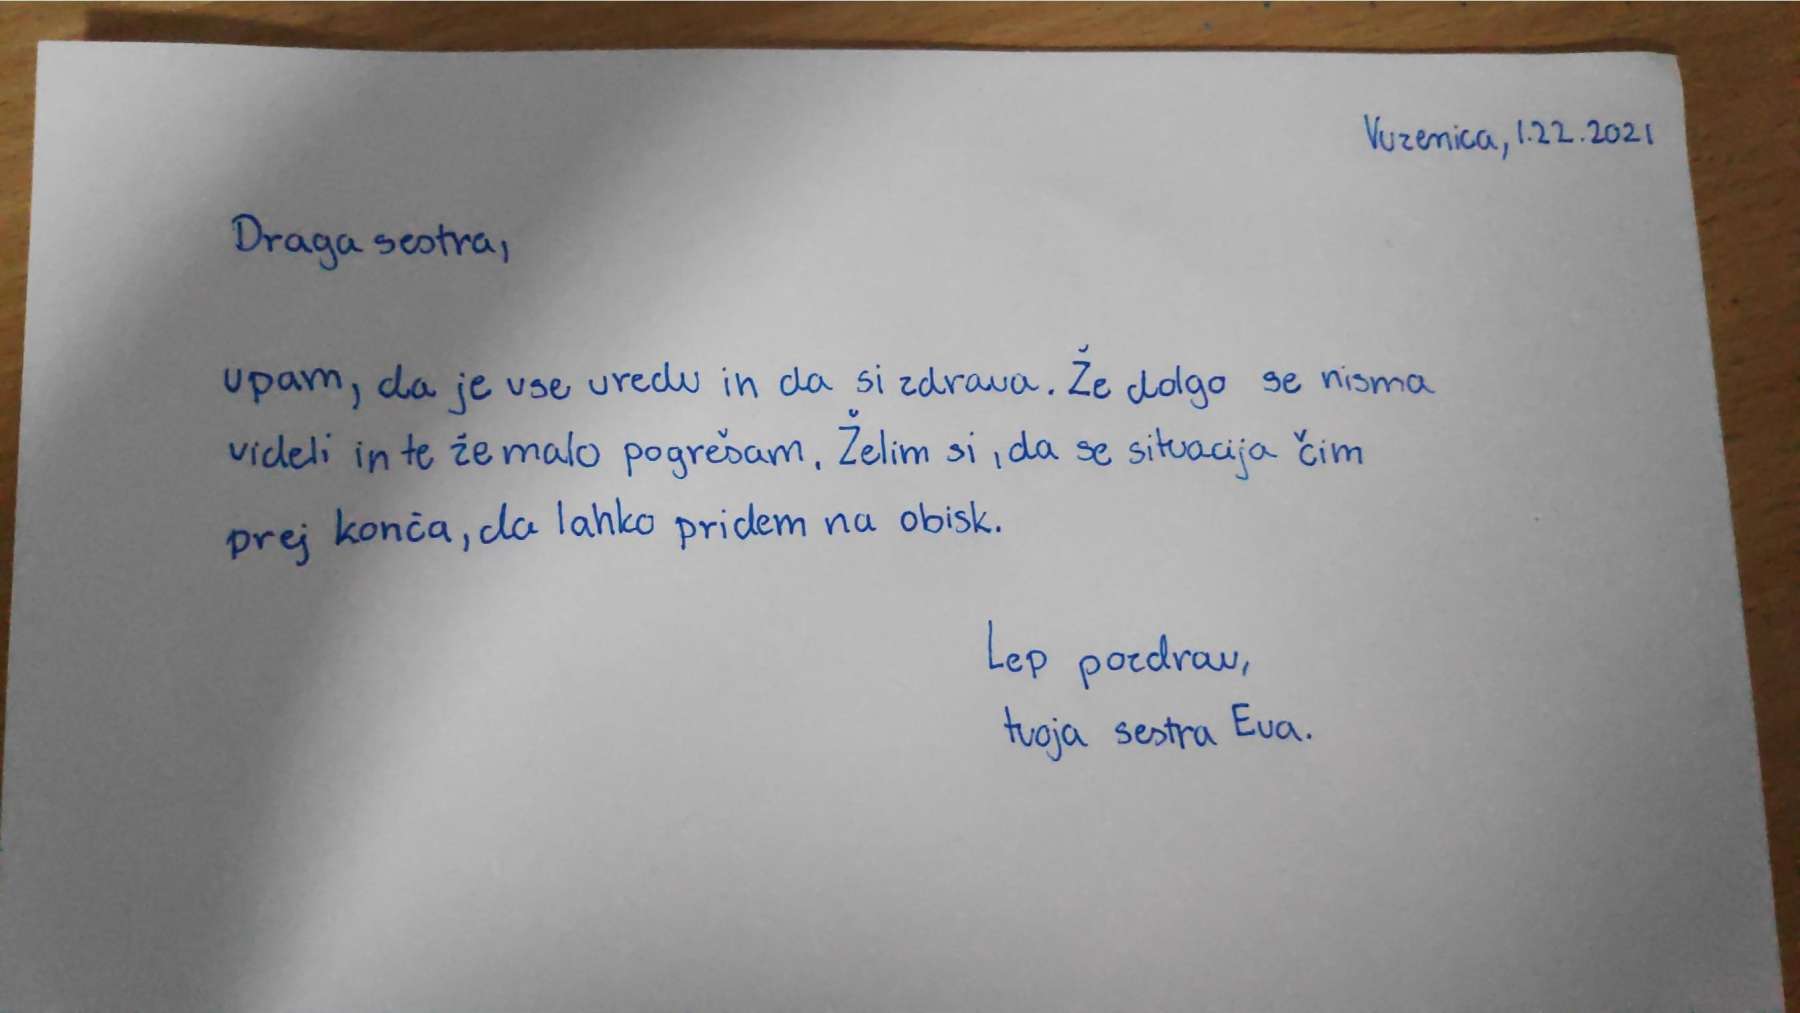 Vuzenica, 1.22.2021
Draga sestra,
upam, da je vse vredu in da si zdrava. Že dolgo se nisma
videli in te že malo pogrešam. Želim si, da se situacija čim
prej konča, da lahko pridem na obisk.
Lep pozdrav,
tvoja sestra Eva.